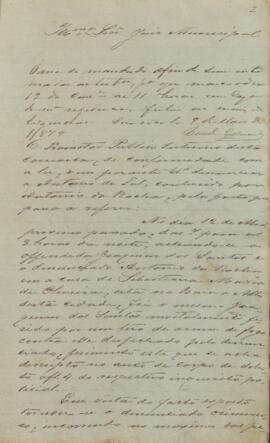 2
Il.mo Sñr Juiz Municipal
Passe-se mandado afim de ser inti
12 de ás 11 horas, em
de 9 de Maio
1877
O Promotor Publico interino desta
comarca, de conformidade com
a lei, vem perante V.S. denunciar
a Antonio de Tal, conhecido por
Antonio da Rocha, pelo facto que
passa a referir:
No dia 12 de Abril
proximo passado, das 7 para as
8 horas da noite, achando-se o
offendido Joaquim dos Santos e
o denunciado Antonio da Rocha
em casa de Sebastiana Maria
de, sita no Bairro Alto
desta Cidade, foi o mesmo Joa
quim dos Santos mortalmente fe
rido por um tiro de arma de fogo
contra elle desfechado pelo denun
ciado, ferimento este que se acha
descripto no auto de corpo de deli
cto a f 4 do respectivo inquerito po
licial.
Em vista do facto exposto
tornou-se o denunciado crimino
so, incorrendo no maximo das pe